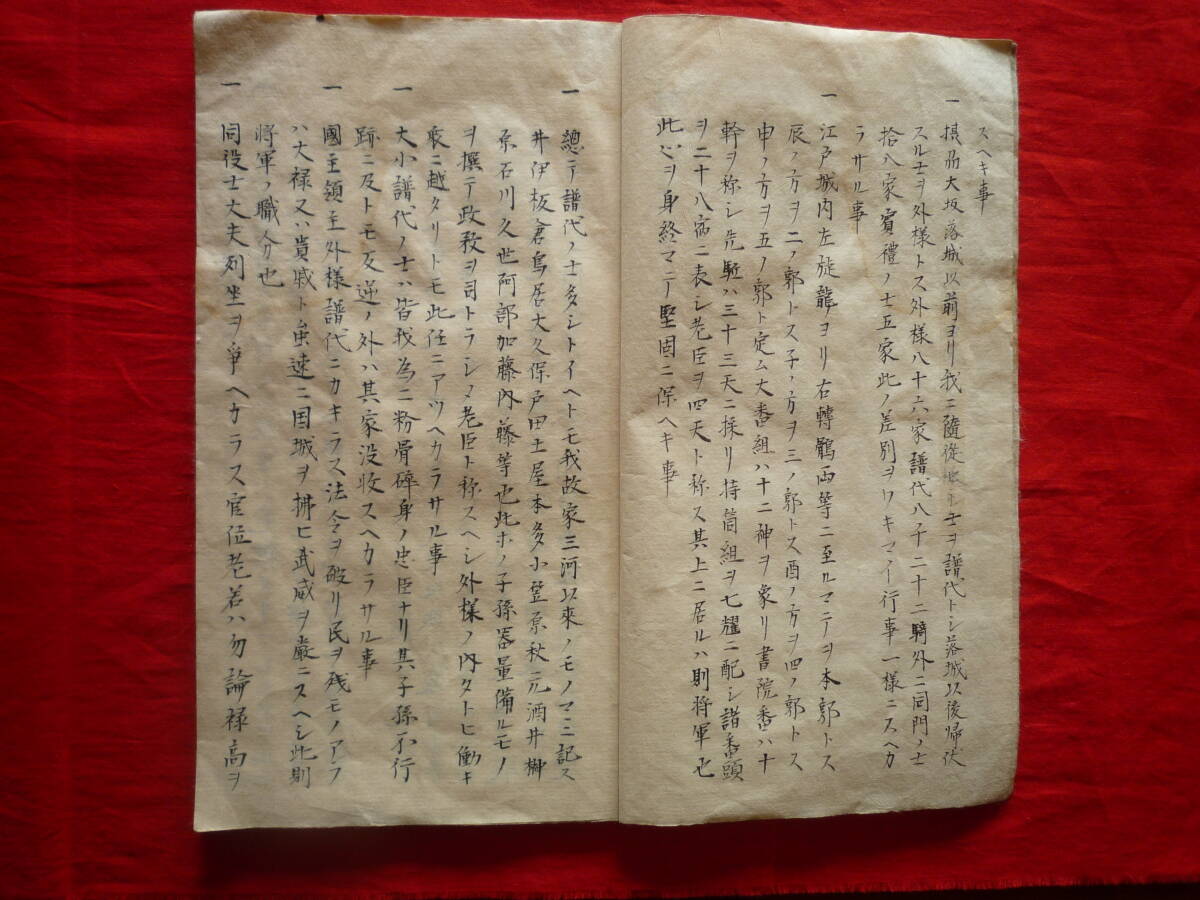 スヘキ事
一 摂州大坂落城以前ヨリ我ニ隨従セシ士ヲ譜代トシ落城以後帰伏
スル士ヲ外様トス外様八十六家譜代八千二十二騎外ニ同門ノ士
拾八家賓禮ノ士五家此ノ差別ヲワキマイ行事一様ニスヘカ
ラサル事
一 江戸城内左旋龍ノ口ヨリ右轉鶴両等ニ至ルマテヲ本郭トス
辰ノ方ヲ二ノ郭トス子ノ方ヲ三ノ郭トス酉ノ方ヲ四ノ郭トス
申ノ方ヲ五ノ郭ト定ム大番組ハ十二神ヲ象リ書院番ハ十
幹ヲ称シ先駈ハ三十三天ニ採リ持筒組ヲ七耀ニ配シ諸番頭
ヲ二十八宿ニ表シ老臣ヲ四天ト称ス其上ニ居ルハ則将軍也
此心ヲ身終マテ堅固ニ保ヘキ事
一 總テ譜代ノ士多シトイヘトモ我故家三河以來ノモノマテ記ス
井伊板倉鳥居大久保戸田土屋本多小笠原秋元酒井榊
原石川久世阿部加藤内藤等也此ホノ子孫器量備ルモノ
ヲ撰テ政務ヲ司トラシメ老臣ト称スヘシ外様ノ内タトヒ働キ
衆ニ越タリトモ此任ニアツヘカラサル事
一 大小譜代ノ士ハ皆我為ニ粉骨碎身ノ忠臣ナリ其子孫不行
跡ニ及トモ反逆ノ外ハ其家没收スヘカラサル事
一 國主領主外様譜代ニカキラス法令ヲ破リ民ヲ残モノアラ
ハ大禄又ハ貴戚ト虽速ニ国城ヲ拂ヒ武威ヲ嚴ニスヘシ此則
将軍ノ職分也
一 同役士大夫列坐ヲ爭ヘカラス官位老若ハ勿論禄高ヲ